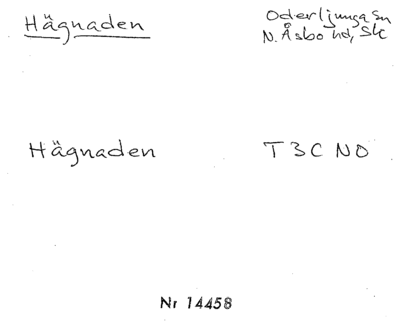 Hägnaden
Oderljunga Sn
N. Åsbo hd, Sk
Hägnaden
T 3 C NO
Nr 14458